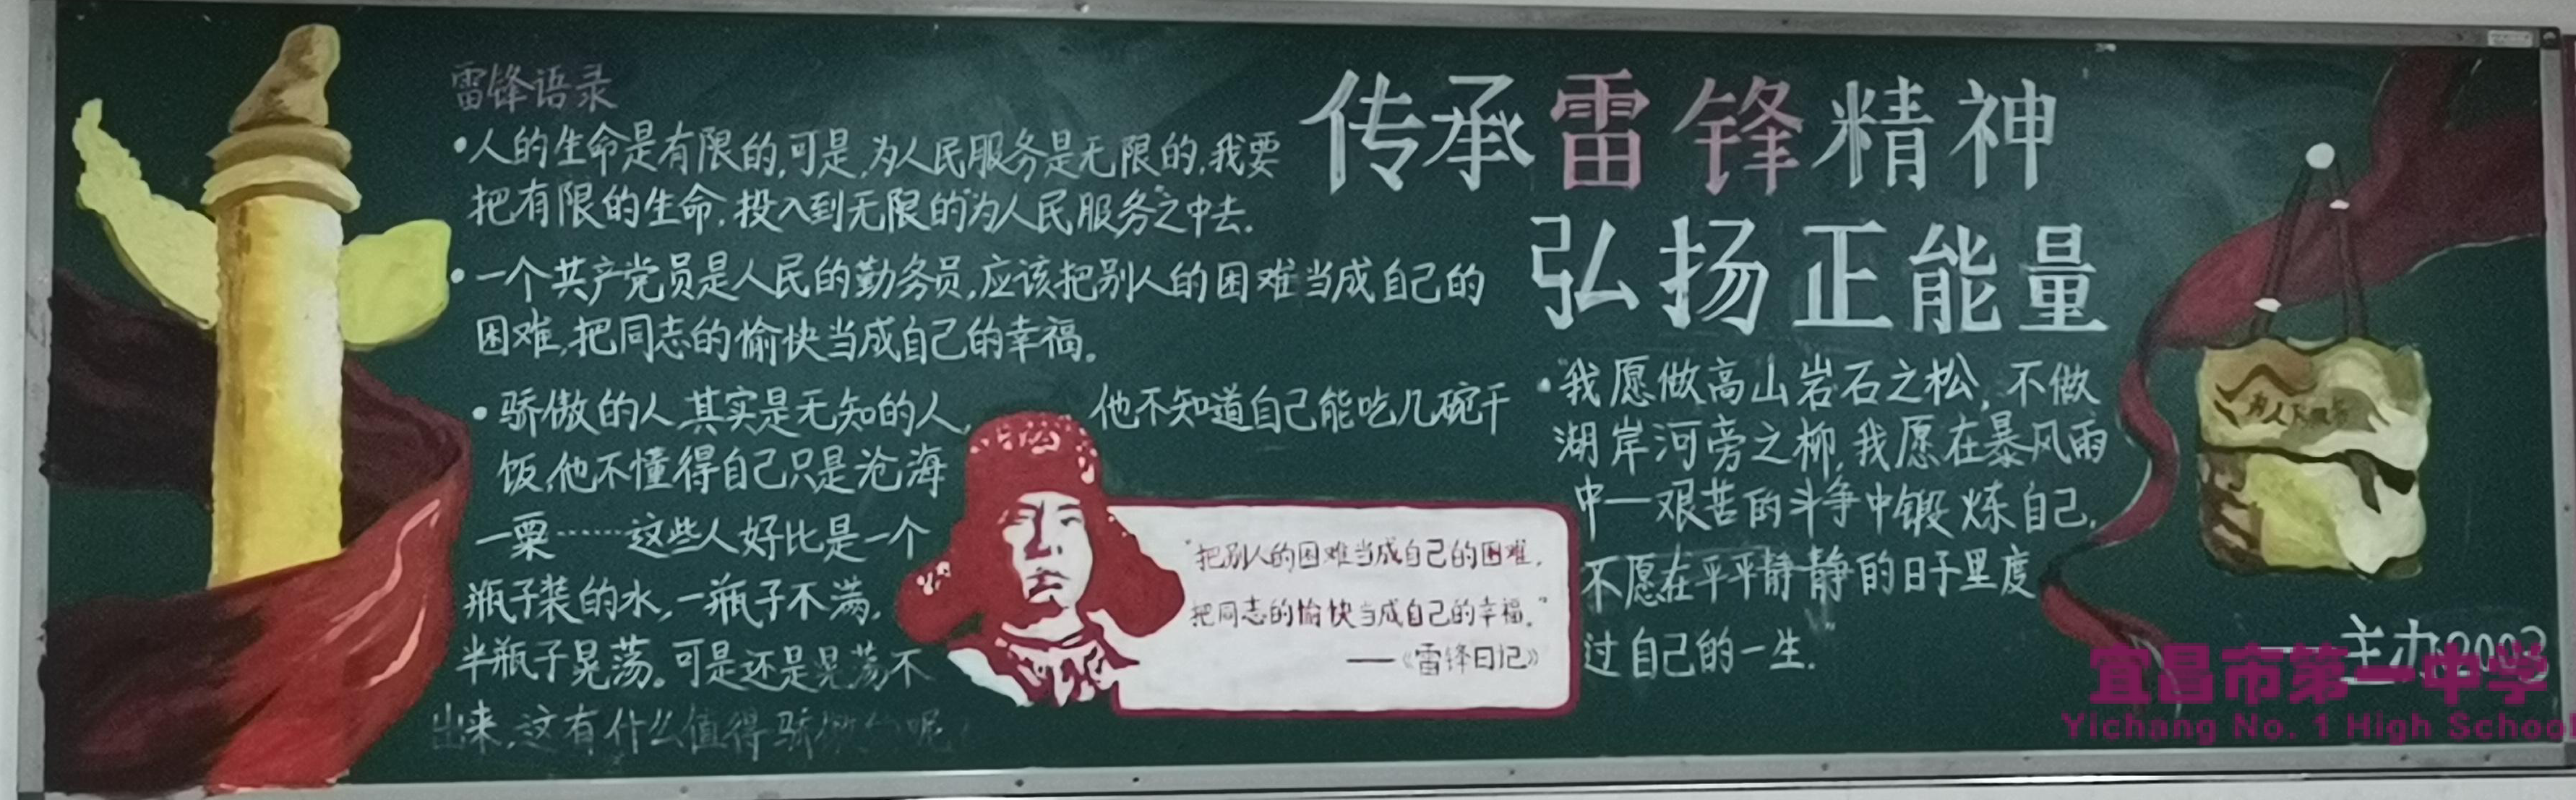 雷锋语录
•人的生命是有限的,可是,为人民服务是无限的,我要
把有限的生命,投入到无限的"为人民服务"之中去.
•一个共产党员是人民的勤务员,应该把别人的困难当成自己的
困难,把同志的愉快当成自己的幸福。
•骄傲的人其实是无知的人,他不知道自己能吃几碗干
饭,他不懂得自己只是沧海
一粟……这些人好比是一个
瓶子装的水,一瓶子不满,
半瓶子晃荡。可是还是晃荡不
出来,这有什么值得骄傲的呢
传承雷锋精神
弘扬正能量
•我愿做高山岩石之松,不做
湖岸河旁之柳,我愿在暴风雨
中一艰苦的斗争中锻炼自己,
不愿在平平静静的日子里度
过自己的一生.
"把别人的困难当成自己的困难,
把同志的愉快当成自己的幸福."
——《雷锋日记》
为人民服务
主办
宜昌市第一中学
Yichang No. 1 High School